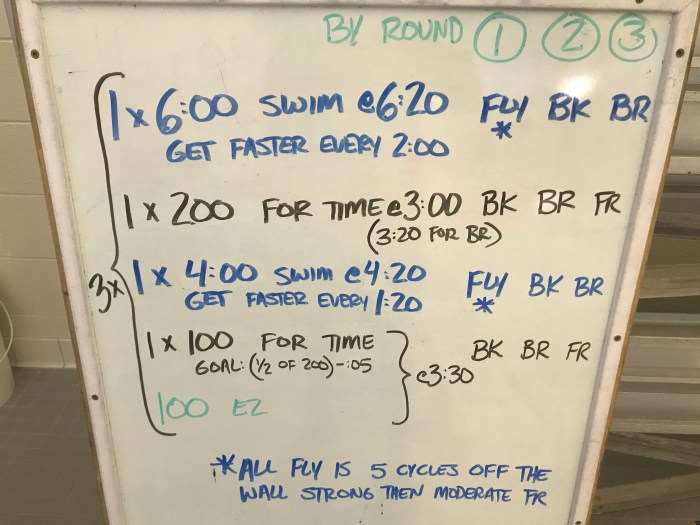 BY ROUND 1 2 3
1 x 6:00 SWIM @6:20 FLY BK BR
*
GET FASTER EVERY 2:00
1 x 200 FOR TIME @3:00 BK BR FR
(3:20 FOR BR)
3x
1 x 4:00 SWIM @4:20 FLY BK BR
*
GET FASTER EVERY 1:20
1 x 100 FOR TIME BK BR FR
GOAL: (1/2 OF 200) - :05
@3:30
100 EZ
*ALL FLY IS 5 CYCLES OFF THE
WALL STRONG THEN MODERATE FR